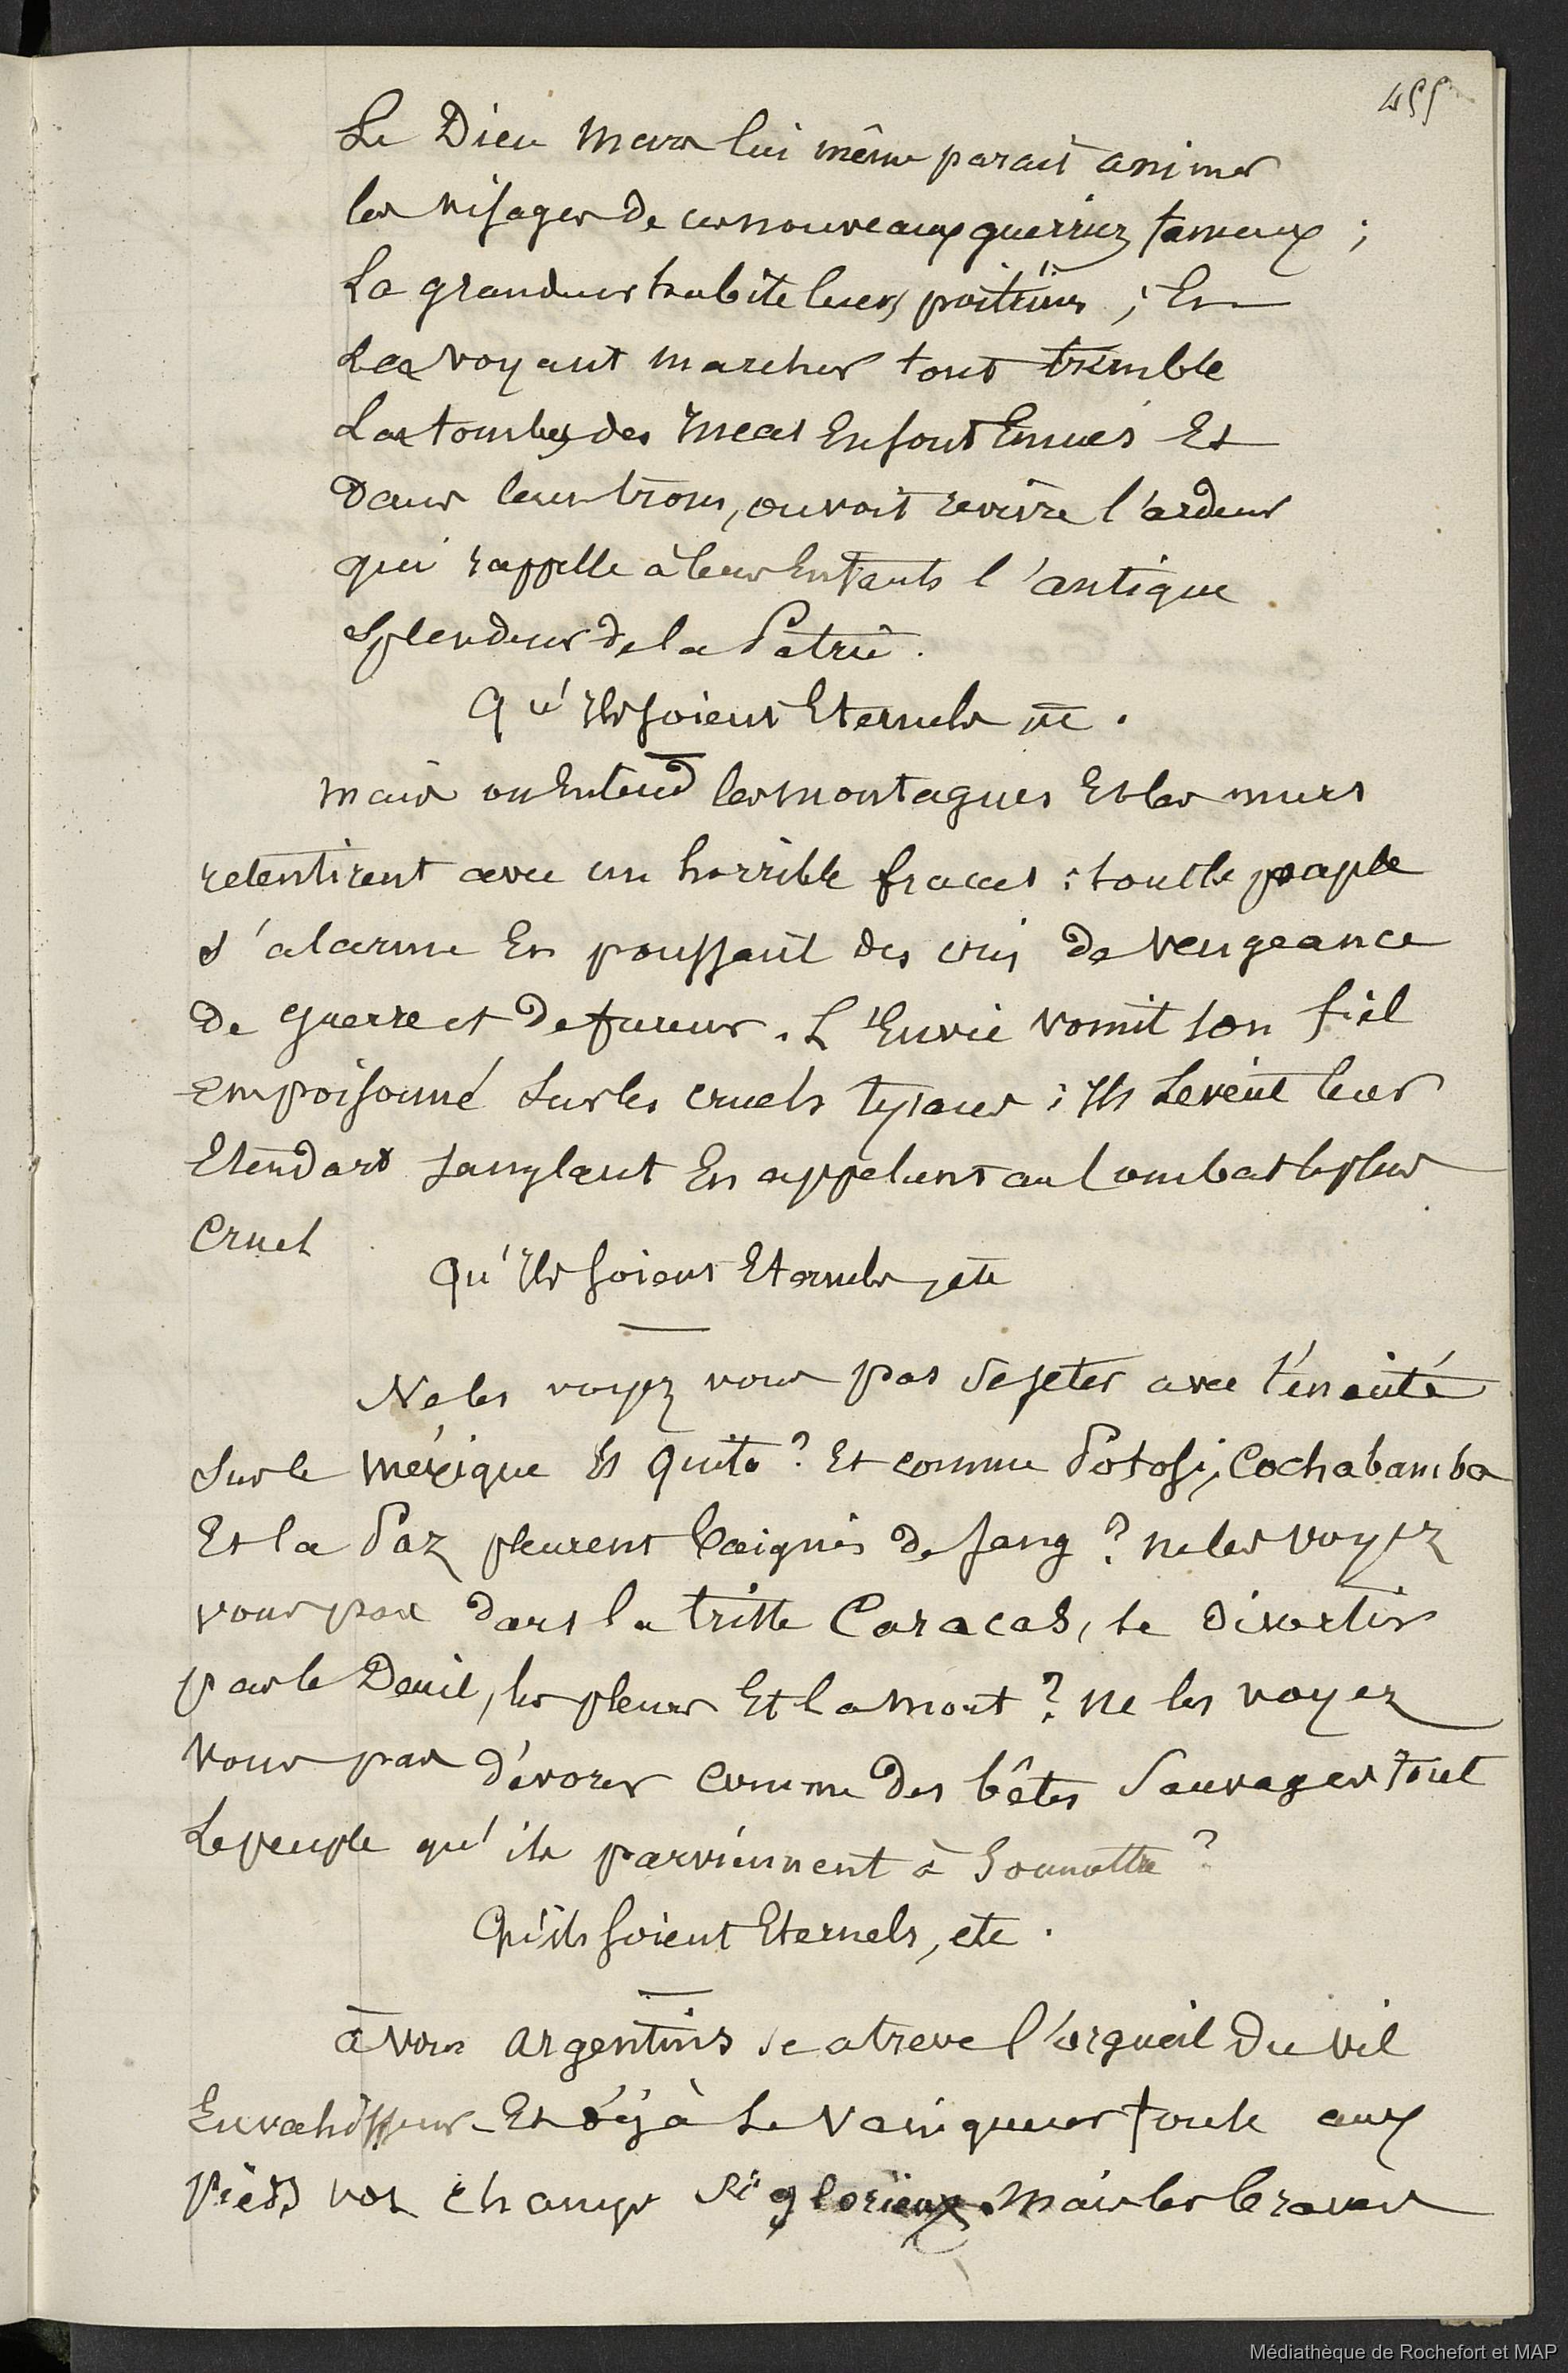 455
Le Dieu Mars lui même parait animer
les visages de ces nouveaux guerriez fameux ;
La grandeur habite leurs poitrines ; En
Les voyant marcher tout tremble
Les tombes des Incas En sont Emues Et
Dans leurs trous, on voit revivre l'ardeur
qui rappelle à leur Enfants l'antique
Splendeur de la Patrie.
Qu'Ils soient Eternels etc.
Mais on Entend les montagnes Et les murs
retentirent avec un horrible fracas : tout le peuple
s'alarme En poussant des cris de vengeance
de guerre et de fureur. L'Envie vomit son fiel
Empoisonné Sur les cruels tyrans ; Ils Levent leur
Etendart sanglant En appelant au Combat le plus
Cruel
Qu'Ils soient Eternels, etc
Ne les voyez vous pas Se jeter avec ténacité
Sur le Méxique Et Quito ? Et comme Potosi, Cochabamba
Et la Paz pleurent baignés de sang ? ne les voyez
vous pas dans la triste Caracas, se divertir
par le Deuil, les pleurs Et la mort ? ne les voyez
vous pas dévorer comme des bêtes Sauvages tout
Le peuple qu'ils parviennent à Soumettre ?
Qu'ils soient Eternels, etc.
a vous argentins se atreve l'orgueil du vil
Envahisseur - Et déjà Le Vainqueur foule aux
Pieds vos champs si glorieux. Mais les braves
Médiathèque de Rochefort et MAP